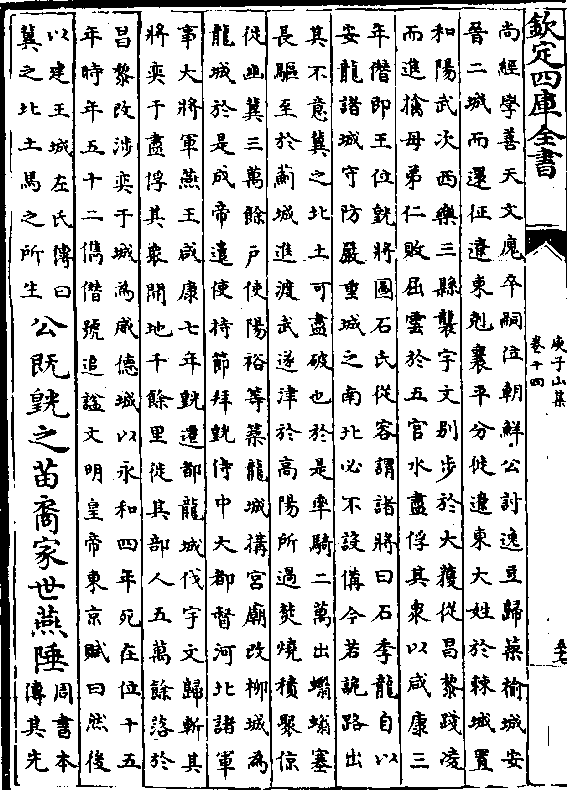 欽定四庫全書
庾子山集
卷十四
尚經學善天文廆卒嗣位朝鮮公討逸豆歸築榆城安
晉二城而還征遼東剋襄平分徙遼東大姓於棘城置
和陽武次西樂三縣襲宇文别步於大獲從昌黎踐凌
而進擒母弟仁敗屈雲於五官水盡俘其衆以咸康三
年僭即王位皝將圖石氏從容謂諸將曰石季龍自以
安龍諸城守防嚴重城之南北必不設備今若詭路出
其不意冀之北土可盡破也於是率騎二萬出蠮螉塞
長驅至於薊城進渡武遂津於高陽所過焚燒積聚倞
從幽冀三萬餘户使陽裕等築龍城構宮廟改柳城為
龍城於是成帝遣使持節拜皝侍中大都督河北諸軍
事大將軍燕王咸康七年皝遷都龍城伐宇文歸斬其
將奕于盡俘其衆開地千餘里徙其部人五萬餘落於
昌黎改涉奕于城為威德城以永和四年死在位十五
年時年五十二儁僭號追諡文明皇帝東京賦曰然後
以建王城左氏傳曰
冀之北土馬之所生
公既皝之苗裔家世燕陲
周書本
傳其先